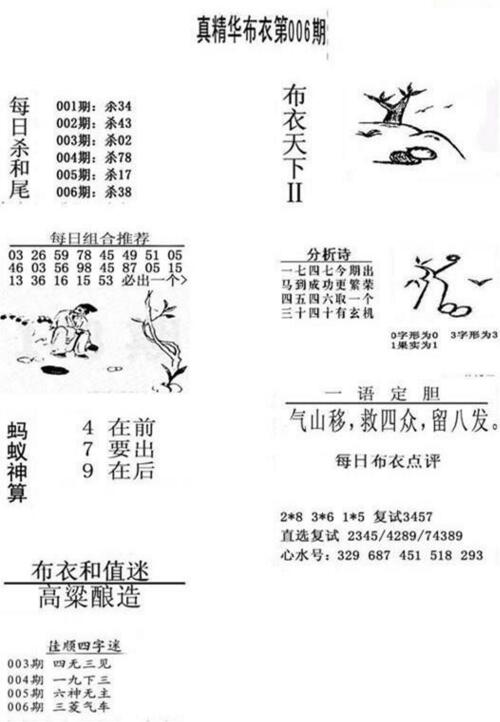 真精华布衣第006期
每日杀和尾
001期：杀34
002期：杀43
003期：杀02
004期：杀78
005期：杀17
006期：杀38
布衣天下II
每日组合推荐
03 26 59 78 45 49 51 05
46 03 56 98 45 87 05 15
13 36 16 15 53 必出一个>
分析诗
一七四七今期出
马到成功更繁荣
四五四六取一个
三十四十有玄机
0字形为0 3字形为3
1果实为1
蚂蚁神算
4 在前
7 要出
9 在后
一语定胆
气山移，救四众，留八发。
每日布衣点评
2*8 3*6 1*5 复试3457
直选复试 2345/4289/74389
心水号：329 687 451 518 293
布衣和值迷
高粱酿造
佳顺四字迷
003期 四无三见
004期 一九下三
005期 六神无主
006期 三菱气车